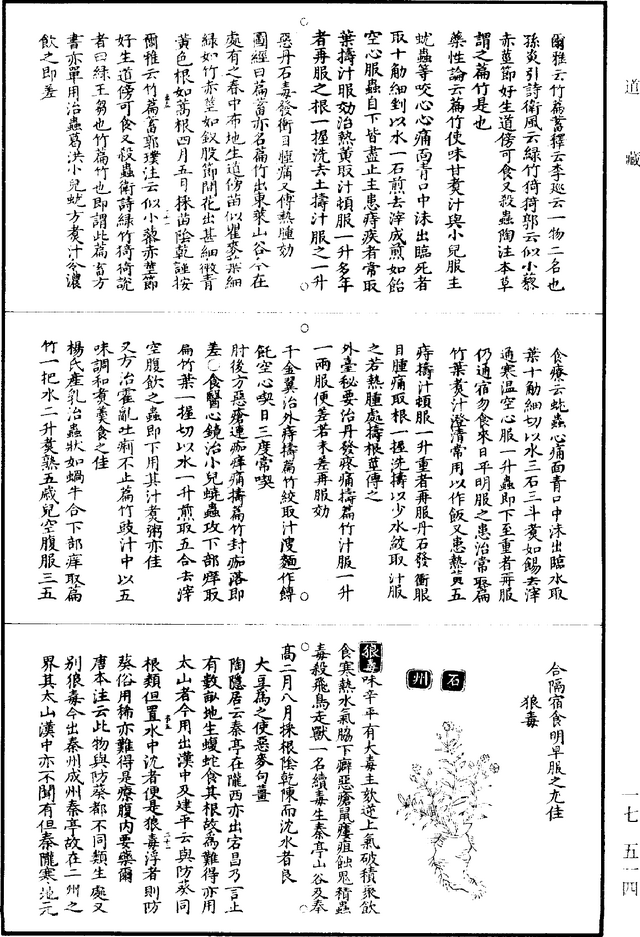 道藏
爾雅云竹萹蓄釋云李巡云一物二名也
孫炎引詩衛風云綠竹猗猗郭云似小藜
赤莖節好生道傍可食又殺蟲陶注本草
謂之萹竹是也
藥性論云萹竹使味甘煮汁與小兒服主
蚘蟲等咬心心痛面青口中沫出臨死者
取十觔細剉以水一石煎去滓成煎如飴
空心服蟲自下皆盡止主患痔疾者常取
葉擣汁服効治熱黃取汁頓服一升多年
者再服之根一握洗去土擣汁服之一升
惡丹石毒發衝目腫痛又傅熱腫効
圖經曰萹蓄亦名萹竹出東萊山谷今在
處有之春中布地生道傍苗似瞿麥葉細
綠如竹赤莖如釵股節間花出甚細微青
黃色根如蒿根四月五月採苗陰乾謹按
爾雅云竹萹蓄郭璞注云似小藜赤莖節
好生道傍可食又殺蟲衛詩綠竹猗猗說
者曰綠王芻也竹萹竹也即謂此萹蓄方
書亦單用治蟲葛洪小兒蚘方煮汁令濃
飲之即差
食療云蚘蟲心痛面青口中沫出臨水取
葉十觔細切以水三石三斗煮如餳去滓
通寒溫空心服一升蟲即下至重者再服
仍通宿勿食來日平明服之患治常取萹
竹葉煮汁澄清常用以作飯又患熱黃五
痔擣汁頓服一升重者再服丹石發衝眼
目腫痛取根一握洗擣以少水絞取汁服
之若熱腫處擣根莖傅之
外臺秘要治丹發疼痛擣萹竹汁服一升
一兩服便差若未差再服効
千金翼治外痔擣萹竹絞取汁溲麵作餺
飥空心喫日三度常喫
肘後方惡瘡連痂痒痛擣萹竹封痂落即
差○食醫心鏡治小兒蟯蟲攻下部痒取
萹竹葉一握切以水一升煎取五合去滓
空腹飲之蟲即下用其汁煮粥亦佳
又方治霍亂吐痢不止萹竹豉汁中以五
味調和煮羹食之佳
楊氏產乳治蟲狀如蝸牛合下部痒取萹
竹一把水二升煮熟五歲兒空腹服三五
合隔宿食明早服之尤佳
狼毒
石州
狼毒味辛平有大毒主欬逆上氣破積聚飲
食寒熱水氣脇下癖惡瘡鼠瘻疽蝕鬼精蟲
毒殺飛鳥走獸一名續毒生秦亭山谷及奉
高二月八月採根陰乾陳而沈水者良
大豆為之使惡麥句薑
陶隱居云秦亭在隴西亦出宕昌乃言止
有數畝地生蝮蛇食其根故為難得亦用
太山者今用出漢中及建平云與防葵同
根類但置水中沈者便是狼毒浮者則防
葵俗用稀亦難得是療腹內要藥爾
唐本注云此物與防葵都不同類生處又
別狼毒今出秦州成州秦亭故在二州之
界其太山漢中亦不聞有但秦隴寒地元
一七 五一四